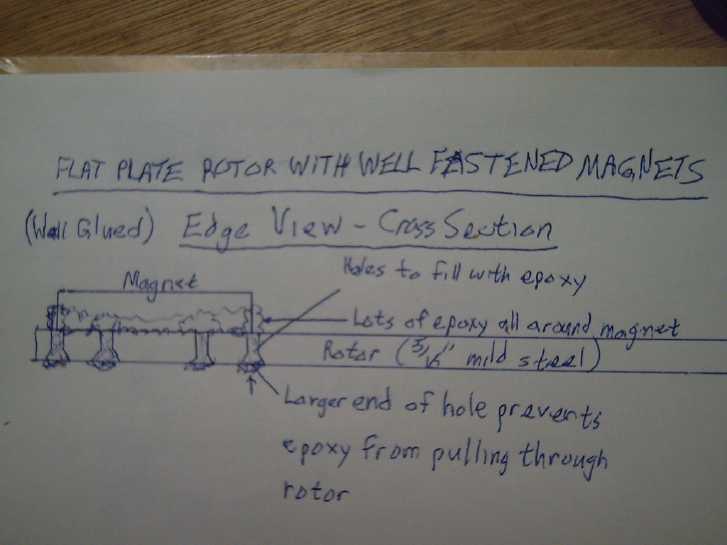 FLAT PLATE ROTOR WITH WELL FASTENED MAGNETS
(Well Glued) Edge View - Cross Section
Holes to fill with epoxy
Magnet
Lots of epoxy all around magnet
Rotor (5/16" mild steel)
Larger end of hole prevents
epoxy from pulling through
rotor